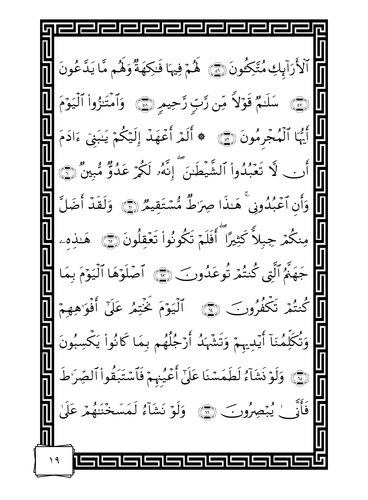 ٱلْأَرَآئِكِ مُتَّكِـُٔونَ ۝٥٦ لَهُمْ فِيهَا فَـٰكِهَةٌ وَلَهُم مَّا يَدَّعُونَ
۝٥٧ سَلَـٰمٌ قَوْلًا مِّن رَّبٍّ رَّحِيمٍ ۝٥٨ وَٱمْتَـٰزُوا۟ ٱلْيَوْمَ
أَيُّهَا ٱلْمُجْرِمُونَ ۝٥٩ ۞ أَلَمْ أَعْهَدْ إِلَيْكُمْ يَـٰبَنِىٓ ءَادَمَ
أَن لَّا تَعْبُدُوا۟ ٱلشَّيْطَـٰنَ ۖ إِنَّهُۥ لَكُمْ عَدُوٌّ مُّبِينٌ ۝٦٠
وَأَنِ ٱعْبُدُونِى ۚ هَـٰذَا صِرَٰطٌ مُّسْتَقِيمٌ ۝٦١ وَلَقَدْ أَضَلَّ
مِنكُمْ جِبِلًّا كَثِيرًا ۖ أَفَلَمْ تَكُونُوا۟ تَعْقِلُونَ ۝٦٢ هَـٰذِهِۦ
جَهَنَّمُ ٱلَّتِى كُنتُمْ تُوعَدُونَ ۝٦٣ ٱصْلَوْهَا ٱلْيَوْمَ بِمَا
كُنتُمْ تَكْفُرُونَ ۝٦٤ ٱلْيَوْمَ نَخْتِمُ عَلَىٰٓ أَفْوَٰهِهِمْ
وَتُكَلِّمُنَآ أَيْدِيهِمْ وَتَشْهَدُ أَرْجُلُهُم بِمَا كَانُوا۟ يَكْسِبُونَ
۝٦٥ وَلَوْ نَشَآءُ لَطَمَسْنَا عَلَىٰٓ أَعْيُنِهِمْ فَٱسْتَبَقُوا۟ ٱلصِّرَٰطَ
فَأَنَّىٰ يُبْصِرُونَ ۝٦٦ وَلَوْ نَشَآءُ لَمَسَخْنَـٰهُمْ عَلَىٰ
١٩